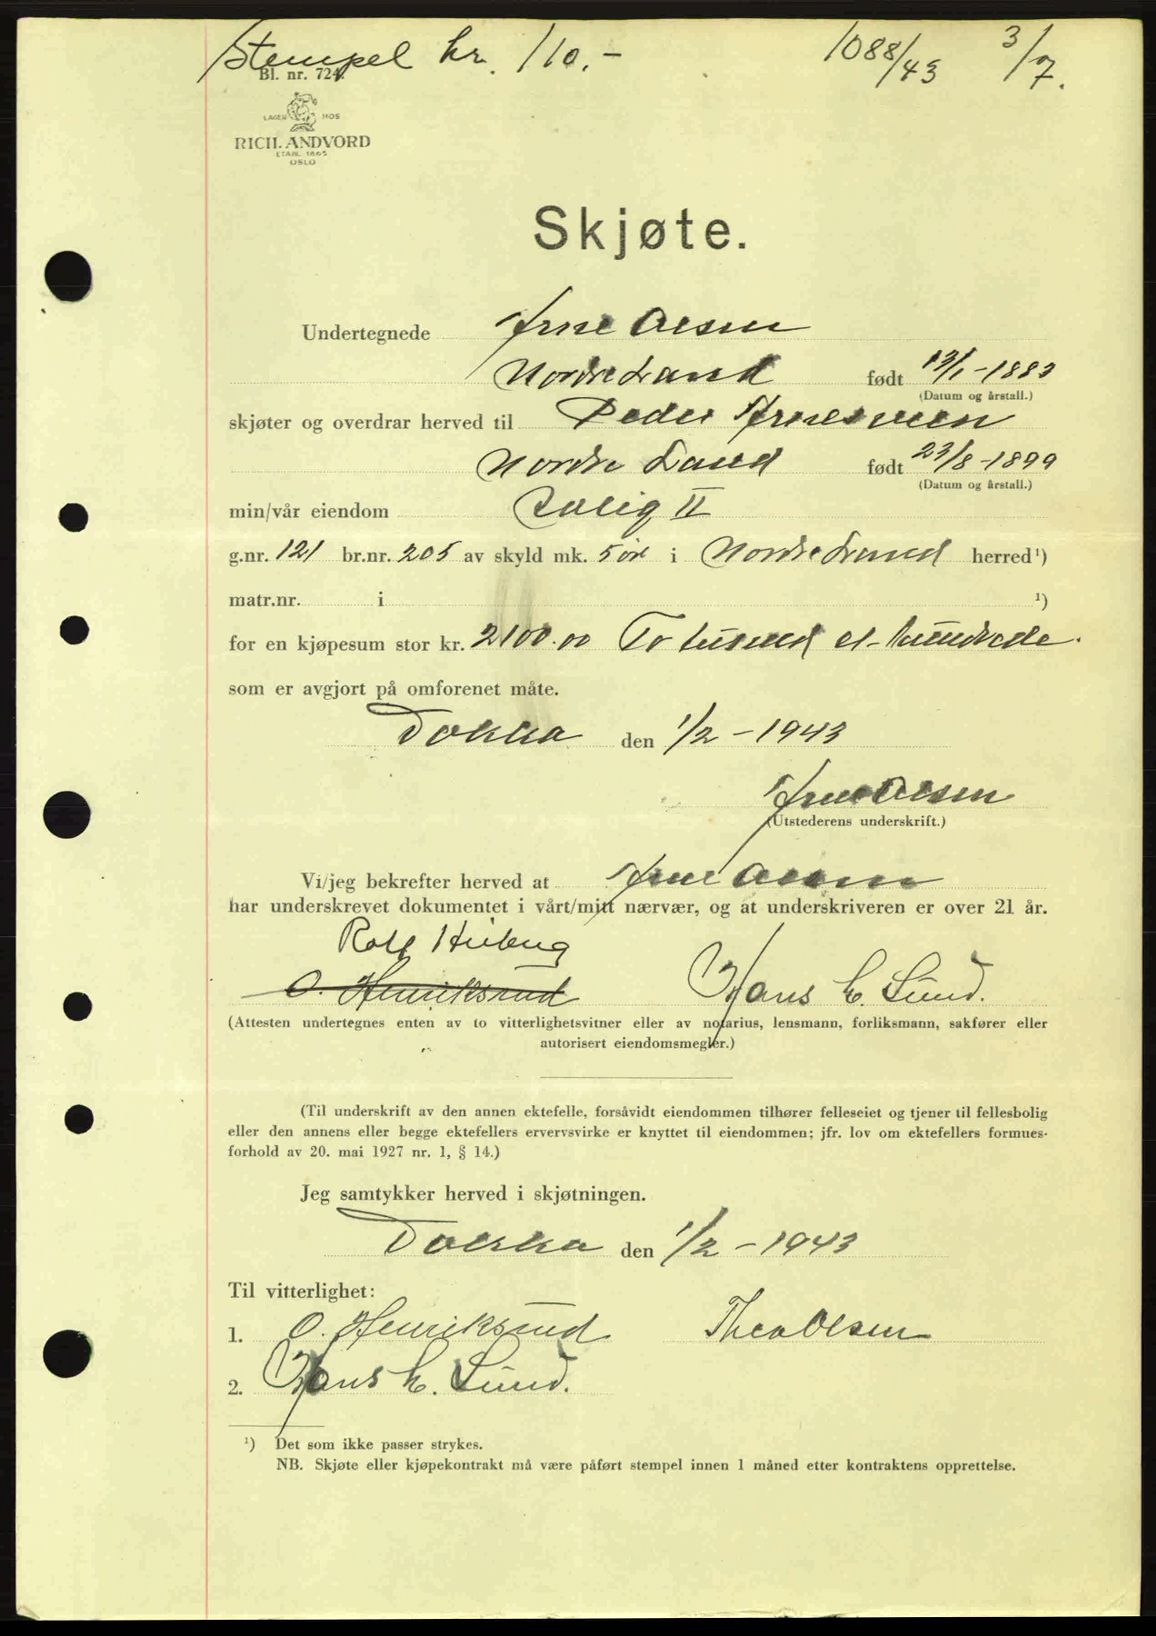 Stempel kr. 110.- 1088/43 3/7.
Bl. nr. 724
LAGER HOS
RICH. ANDVORD
ETABL. 1865
OSLO
Skjøte.
Undertegnede Arne Olsen
Nordre Land født 13/1-1883
(Datum og årstall.)
skjøter og overdrar herved til Peder Arnesveen
Nordre Land født 23/8-1899
(Datum og årstall.)
min/vår eiendom Solig II
g.nr. 121 br.nr. 205 av skyld mk. 5 øre i Nordre Land herred¹)
matr.nr. i ¹)
for en kjøpesum stor kr. 2100.00 To tusend et-hundrede.
som er avgjort på omforenet måte.
Dokka den 1/2-1943
Arne Olsen
(Utstederens underskrift.)
Vi/jeg bekrefter herved at Arne Olsen
har underskrevet dokumentet i vårt/mitt nærvær, og at underskriveren er over 21 år.
Rolf
O. Henriksrud Hans E. Lund.
(Attesten undertegnes enten av to vitterlighetsvitner eller av notarius, lensmann, forliksmann, sakfører eller
autorisert eiendomsmegler.)
(Til underskrift av den annen ektefelle, forsåvidt eiendommen tilhører felleseiet og tjener til fellesbolig
eller den annens eller begge ektefellers ervervsvirke er knyttet til eiendommen; jfr. lov om ektefellers formues-
forhold av 20. mai 1927 nr. 1, § 14.)
Jeg samtykker herved i skjøtningen.
Dokka den 1/2-1943
Til vitterlighet:
1. O. Henriksrud Thea Olsen
2. Hans E. Lund.
¹) Det som ikke passer strykes.
NB. Skjøte eller kjøpekontrakt må være påført stempel innen 1 måned etter kontraktens opprettelse.